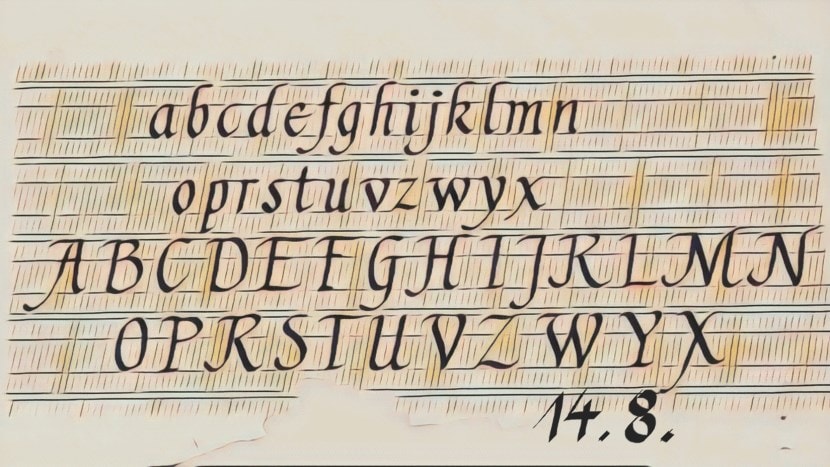 abcdefghijklmn
oprstuvzwyx
ABCDEFGHIJRLMN
OPRSTUVZWYX
14.8.